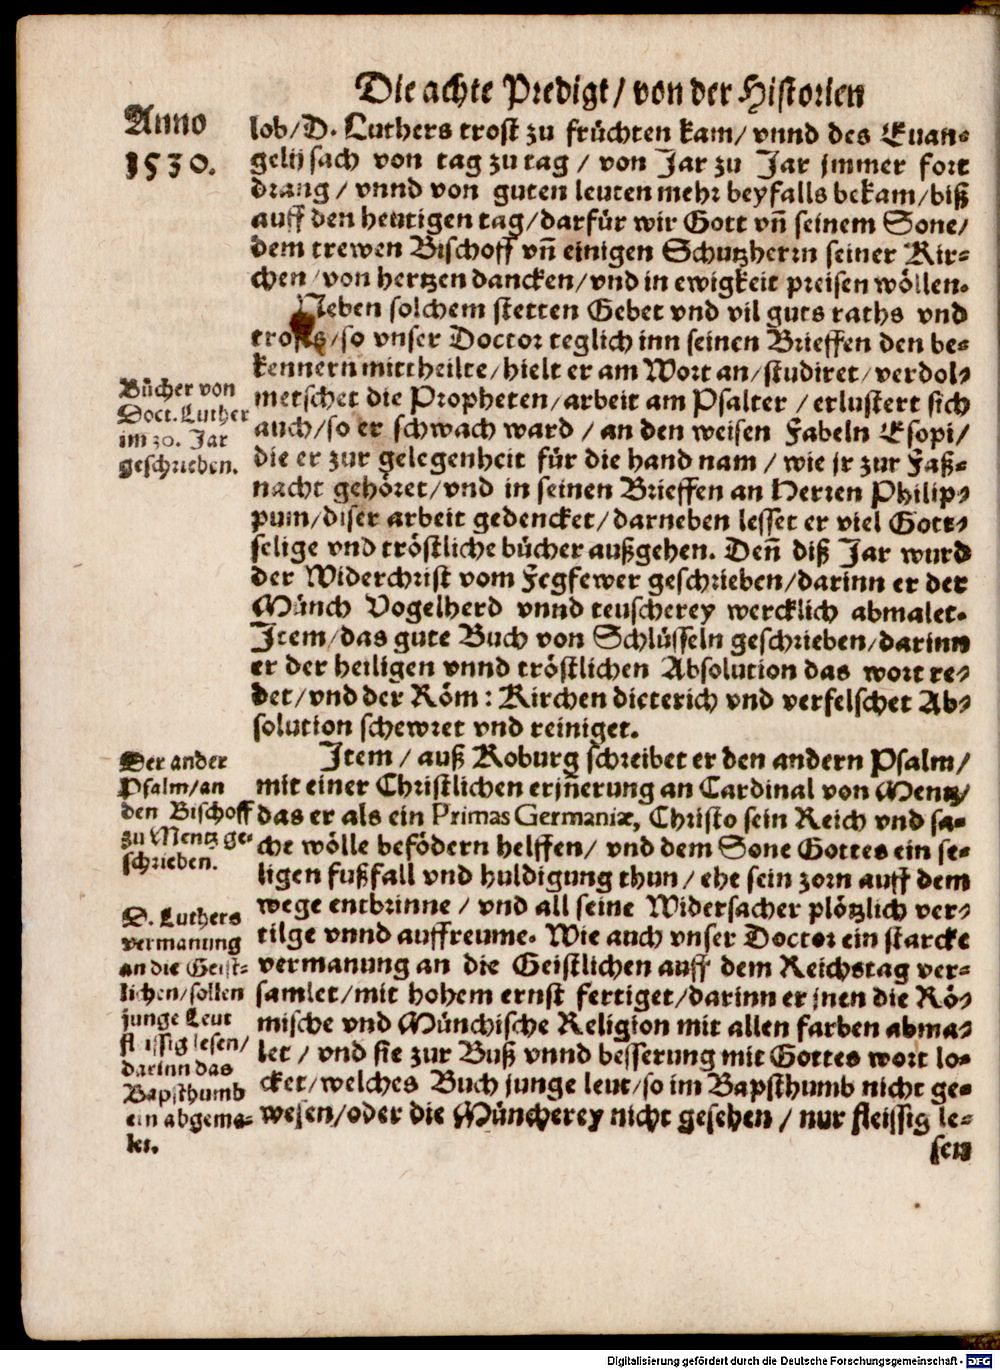 Die achte Predigt / von der Historien
Anno
1530.
lob/D. Luthers trost zu früchten kam/ vnnd des Euan⸗
gelij sach von tag zu tag / von Jar zu Jar jmmer fort
drang / vnnd von guten leuten mehr beyfalls bekam/biß
auff den heutigen tag/darfür wir Gott vn̄ seinem Sone/
dem trewen Bischoff vn̄ einigen Schutzherrn seiner Kir⸗
chen/von hertzen dancken/vnd in ewigkeit preisen wöllen.
Neben solchem stetten Gebet vnd vil guts raths vnd
trosts/so vnser Doctor teglich inn seinen Brieffen den be⸗
kennern mittheilte/hielt er am Wort an/studiret/verdol⸗
metschet die Propheten/arbeit am Psalter / erlustert sich
auch/so er schwach ward / an den weisen Fabeln Esopi/
die er zur gelegenheit für die hand nam / wie jr zur Faß⸗
nacht gehöret/vnd in seinen Brieffen an Herren Philip⸗
pum/diser arbeit gedencket/darneben lesset er viel Gott⸗
selige vnd tröstliche bücher außgehen. Den̄ diß Jar wurd
der Widerchrist vom Fegfewer geschrieben/darinn er der
Münch Vogelherd vnnd teuscherey wercklich abmalet.
Item/das gute Buch von Schlüsseln geschrieben/darinn
er der heiligen vnnd tröstlichen Absolution das wort re⸗
det/vnd der Röm: Kirchen dieterich vnd verfelschet Ab⸗
solution schewret vnd reiniget.
Item / auß Koburg schreibet er den andern Psalm/
mit einer Christlichen erjn̄erung an Cardinal von Mentz/
das er als ein Primas Germaniæ, Christo sein Reich vnd sa⸗
che wölle befödern helffen/ vnd dem Sone Gottes ein se⸗
ligen fußfall vnd huldigung thun / ehe sein zorn auff dem
wege entbrinne / vnd all seine Widersacher plötzlich ver⸗
tilge vnnd auffreume. Wie auch vnser Doctor ein starcke
vermanung an die Geistlichen auff dem Reichstag ver⸗
samlet/mit hohem ernst fertiget/darinn er jnen die Rö⸗
mische vnd Münchische Religion mit allen farben abma⸗
let / vnd sie zur Buß vnnd besserung mit Gottes wort lo⸗
cket/welches Buch junge leut/so im Bapsthumb nicht ge⸗
wesen/oder die Müncherey nicht gesehen / nur fleissig le⸗
sen
Bücher von
Doct. Luther
im 30. Jar
geschrieben.
Der ander
Psalm/an
den Bischoff
zu Mentz ge⸗
schrieben.
D. Luthers
vermanung
an die Geist⸗
lichen/sollen
junge Leut
fleissig lesen/
darinn das
Bapsthumb
ein abgema⸗
let.
Digitalisierung gefördert durch die Deutsche Forschungsgemeinschaft - DFG